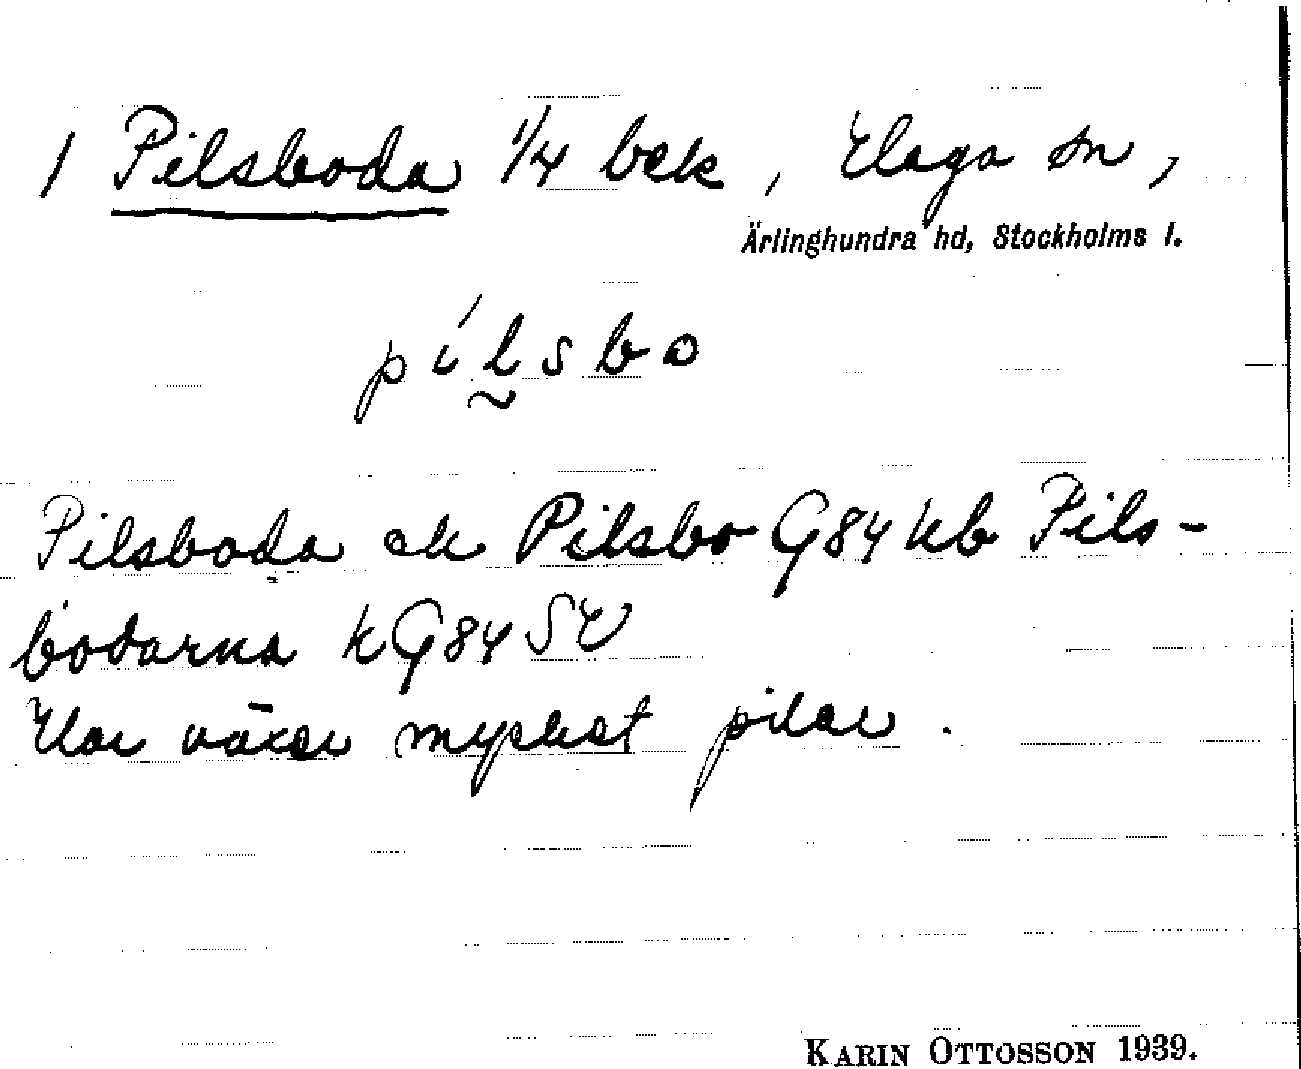 1 Pilsboda 1/4 bek, Haga sn,
Ärlinghundra hd, Stockholms l.
pílsbo
Pilsboda ek Pilsbo G84 kb Pils-
bodarna k G84 SV
Här växer mycket pilar.
KARIN OTTOSSON 1939.